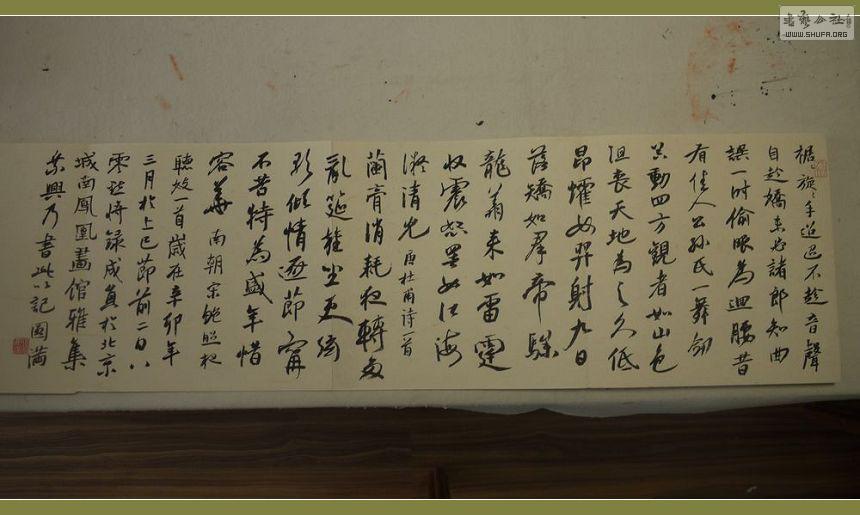 裾旋〻手迢迢不趁音聲
自趁嬌未必諸郎知曲
誤一時偷眼為迴腰昔
有佳人公孫氏一舞劍
器動四方觀者如山色
沮喪天地為之久低
昂㸌如羿射九日
落矯如羣帝驂
龍翔來如雷霆
收震怒罷如江海
凝清光 唐杜甫詩一首
蘭膏消耗夜轉多
亂筵雜坐更絃
歌傾情逐節寧
不苦特為盛年惜
容華 南朝宋鮑照夜
聽妓一首歲在辛卯年
三月於上巳節前二日八
零將錄成真於北京
城南鳳凰畫館雅集
乘興乃書此以記圓滿
書藝公社
WWW.SHUFA.ORG